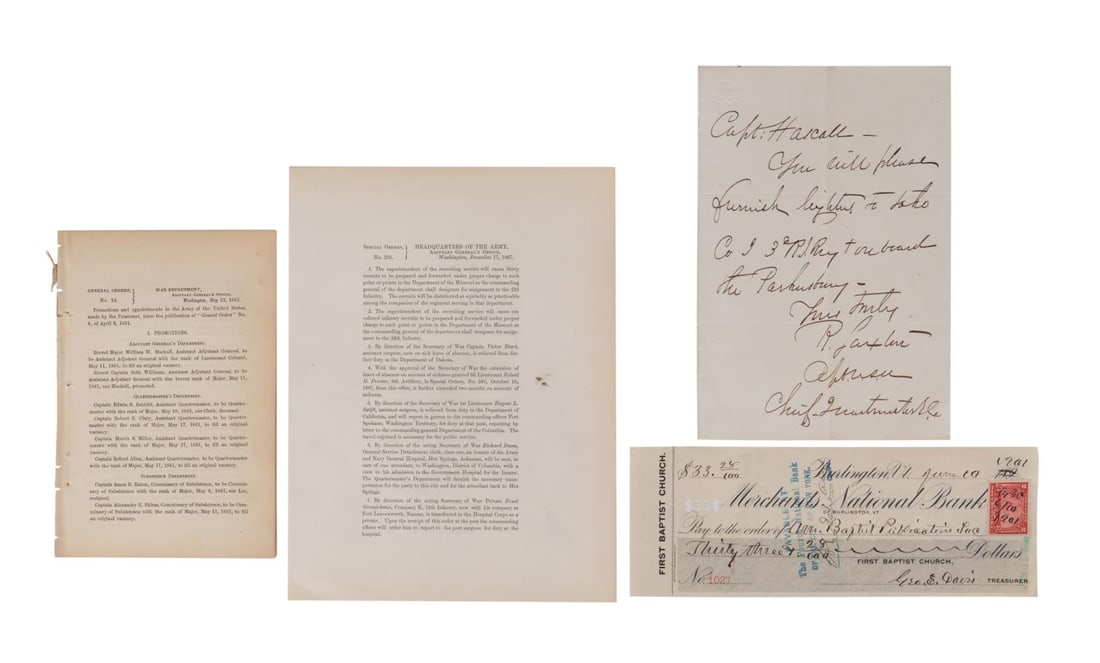 GENERAL ORDERS, No. 24.
WAR DEPARTMENT,
ADJUTANT GENERAL'S OFFICE,
Washington, May 23, 1861.
Promotions and appointments in the Army of the United States,
made by the PRESIDENT, since the publication of "General Order" No.
9, of April 2, 1861.
I. PROMOTIONS.
ADJUTANT GENERAL'S DEPARTMENT.
Brevet Major William W. Mackall, Assistant Adjutant General, to
be Assistant Adjutant General with the rank of Lieutenant Colonel,
May 11, 1861, to fill an original vacancy.
Brevet Captain Seth Williams, Assistant Adjutant General, to be
Assistant Adjutant General with the brevet rank of Major, May 11,
1861, vice Mackall, promoted.
QUARTERMASTER'S DEPARTMENT.
Captain Edwin B. Babbitt, Assistant Quartermaster, to be Quarter-
master with the rank of Major, May 10, 1861, vice Clark, deceased.
Captain Robert E. Clary, Assistant Quartermaster, to be Quarter-
master with the rank of Major, May 17, 1861, to fill an original
vacancy.
Captain Morris S. Miller, Assistant Quartermaster, to be Quarter-
master with the rank of Major, May 17, 1861, to fill an original
vacancy.
Captain Robert Allen, Assistant Quartermaster, to be Quartermaster
with the rank of Major, May 17, 1861, to fill an original vacancy.
SUBSISTENCE DEPARTMENT.
Captain Amos B. Eaton, Commissary of Subsistence, to be Commis-
sary of Subsistence with the rank of Major, May 9, 1861, vice Lee,
resigned.
Captain Alexander E. Shiras, Commissary of Subsistence, to be Com-
missary of Subsistence with the rank of Major, May 11, 1861, to fill
an original vacancy.
SPECIAL ORDERS,
HEADQUARTERS OF THE ARMY,
ADJUTANT GENERAL'S OFFICE,
Washington, December 17, 1887.
1. The superintendent of the recruiting service will cause thirty
recruits to be prepared and forwarded under proper charge to such
point or points in the Department of the Missouri as the commanding
general of the department shall designate for assignment to the 22d
Infantry. The recruits will be distributed as equitably as practicable
among the companies of the regiment serving in that department.
2. The superintendent of the recruiting service will cause ten
colored infantry recruits to be prepared and forwarded under proper
charge to such point or points in the Department of the Missouri as
the commanding general of the department shall designate for assign-
ment to the 24th Infantry.
3. By direction of the Secretary of War Captain Victor Biart,
assistant surgeon, now on sick leave of absence, is relieved from fur-
ther duty in the Department of Dakota.
4. With the approval of the Secretary of War the extension of
leave of absence on account of sickness granted 2d Lieutenant Robert
G. Proctor, 5th Artillery, in Special Orders, No. 245, October 15,
1887, from this office, is further extended two months on account of
sickness.
5. By direction of the Secretary of War 1st Lieutenant Eugene L.
Swift, assistant surgeon, is relieved from duty in the Department of
California, and will report in person to the commanding officer Fort
Spokane, Washington Territory, for duty at that post, reporting by
letter to the commanding general Department of the Columbia. The
travel enjoined is necessary for the public service.
6. By direction of the acting Secretary of War Richard Dunn,
General Service Detachment clerk, class one, an inmate of the Army
and Navy General Hospital, Hot Springs, Arkansas, will be sent, in
care of one attendant, to Washington, District of Columbia, with a
view to his admission to the Government Hospital for the Insane.
The Quartermaster's Department will furnish the necessary trans-
portation for the party to this city and for the attendant back to Hot
Springs.
7. By direction of the acting Secretary of War Private Ernst
Company K, 10th Infantry, now with his company at
Fort Leavenworth, Kansas, is transferred to the Hospital Corps as a
private. Upon the receipt of this order at the post the commanding
officer will order him to report to the post surgeon for duty at the
hospital.
Capt: Hascall –
You will please
furnish to take
Co I 3d R.I. Regt on board
the Parkersburg –
Yours Truly
R. Saxton
Chief Quartermaster
FIRST BAPTIST CHURCH.
$33. 28/100 Burlington, Vt. June 10 1901
Merchants National Bank
BURLINGTON, VT.
Pay to the order of Am. Baptist Publication Soc
Thirty three & 28/100 Dollars
FIRST BAPTIST CHURCH,
No. 1027 Geo. E. Davis TREASURER